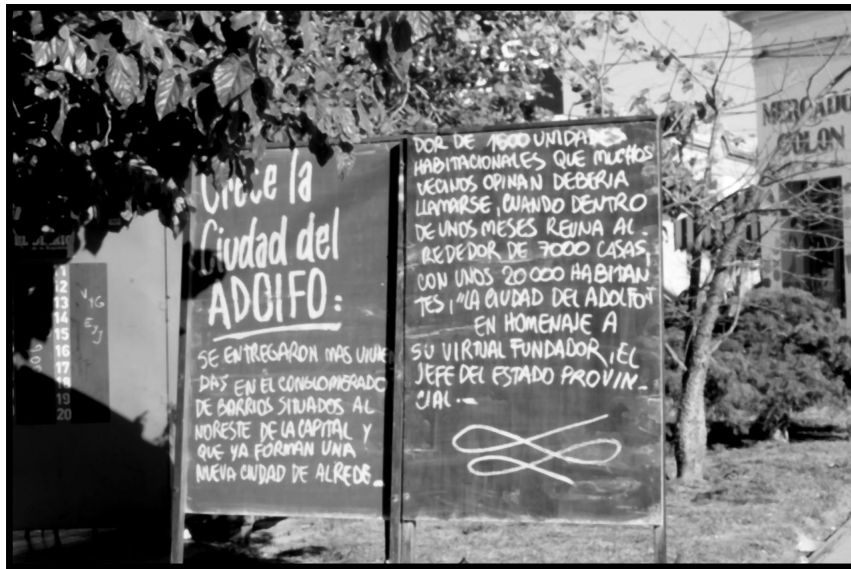 Crece la
Ciudad del
ADOLFO:
SE ENTREGARON MAS VIVIEN
DAS EN EL CONGLOMERADO
DE BARRIOS SITUADOS AL
NORESTE DE LA CAPITAL Y
QUE YA FORMAN UNA
NUEVA CIUDAD DE ALREDE-
DOR DE 1600 UNIDADES
HABITACIONALES QUE MUCHOS
VECINOS OPINAN DEBERIA
LLAMARSE, CUANDO DENTRO
DE UNOS MESES REUNA AL
REDEDOR DE 7000 CASAS,
CON UNOS 20000 HABITAN
TES, "LA CIUDAD DEL ADOLFO"
EN HOMENAJE A
SU VIRTUAL FUNDADOR, EL
JEFE DEL ESTADO PROVIN-
CIAL.-
MERCADO
COLON
12
13
14
15
16
17
18
19
20